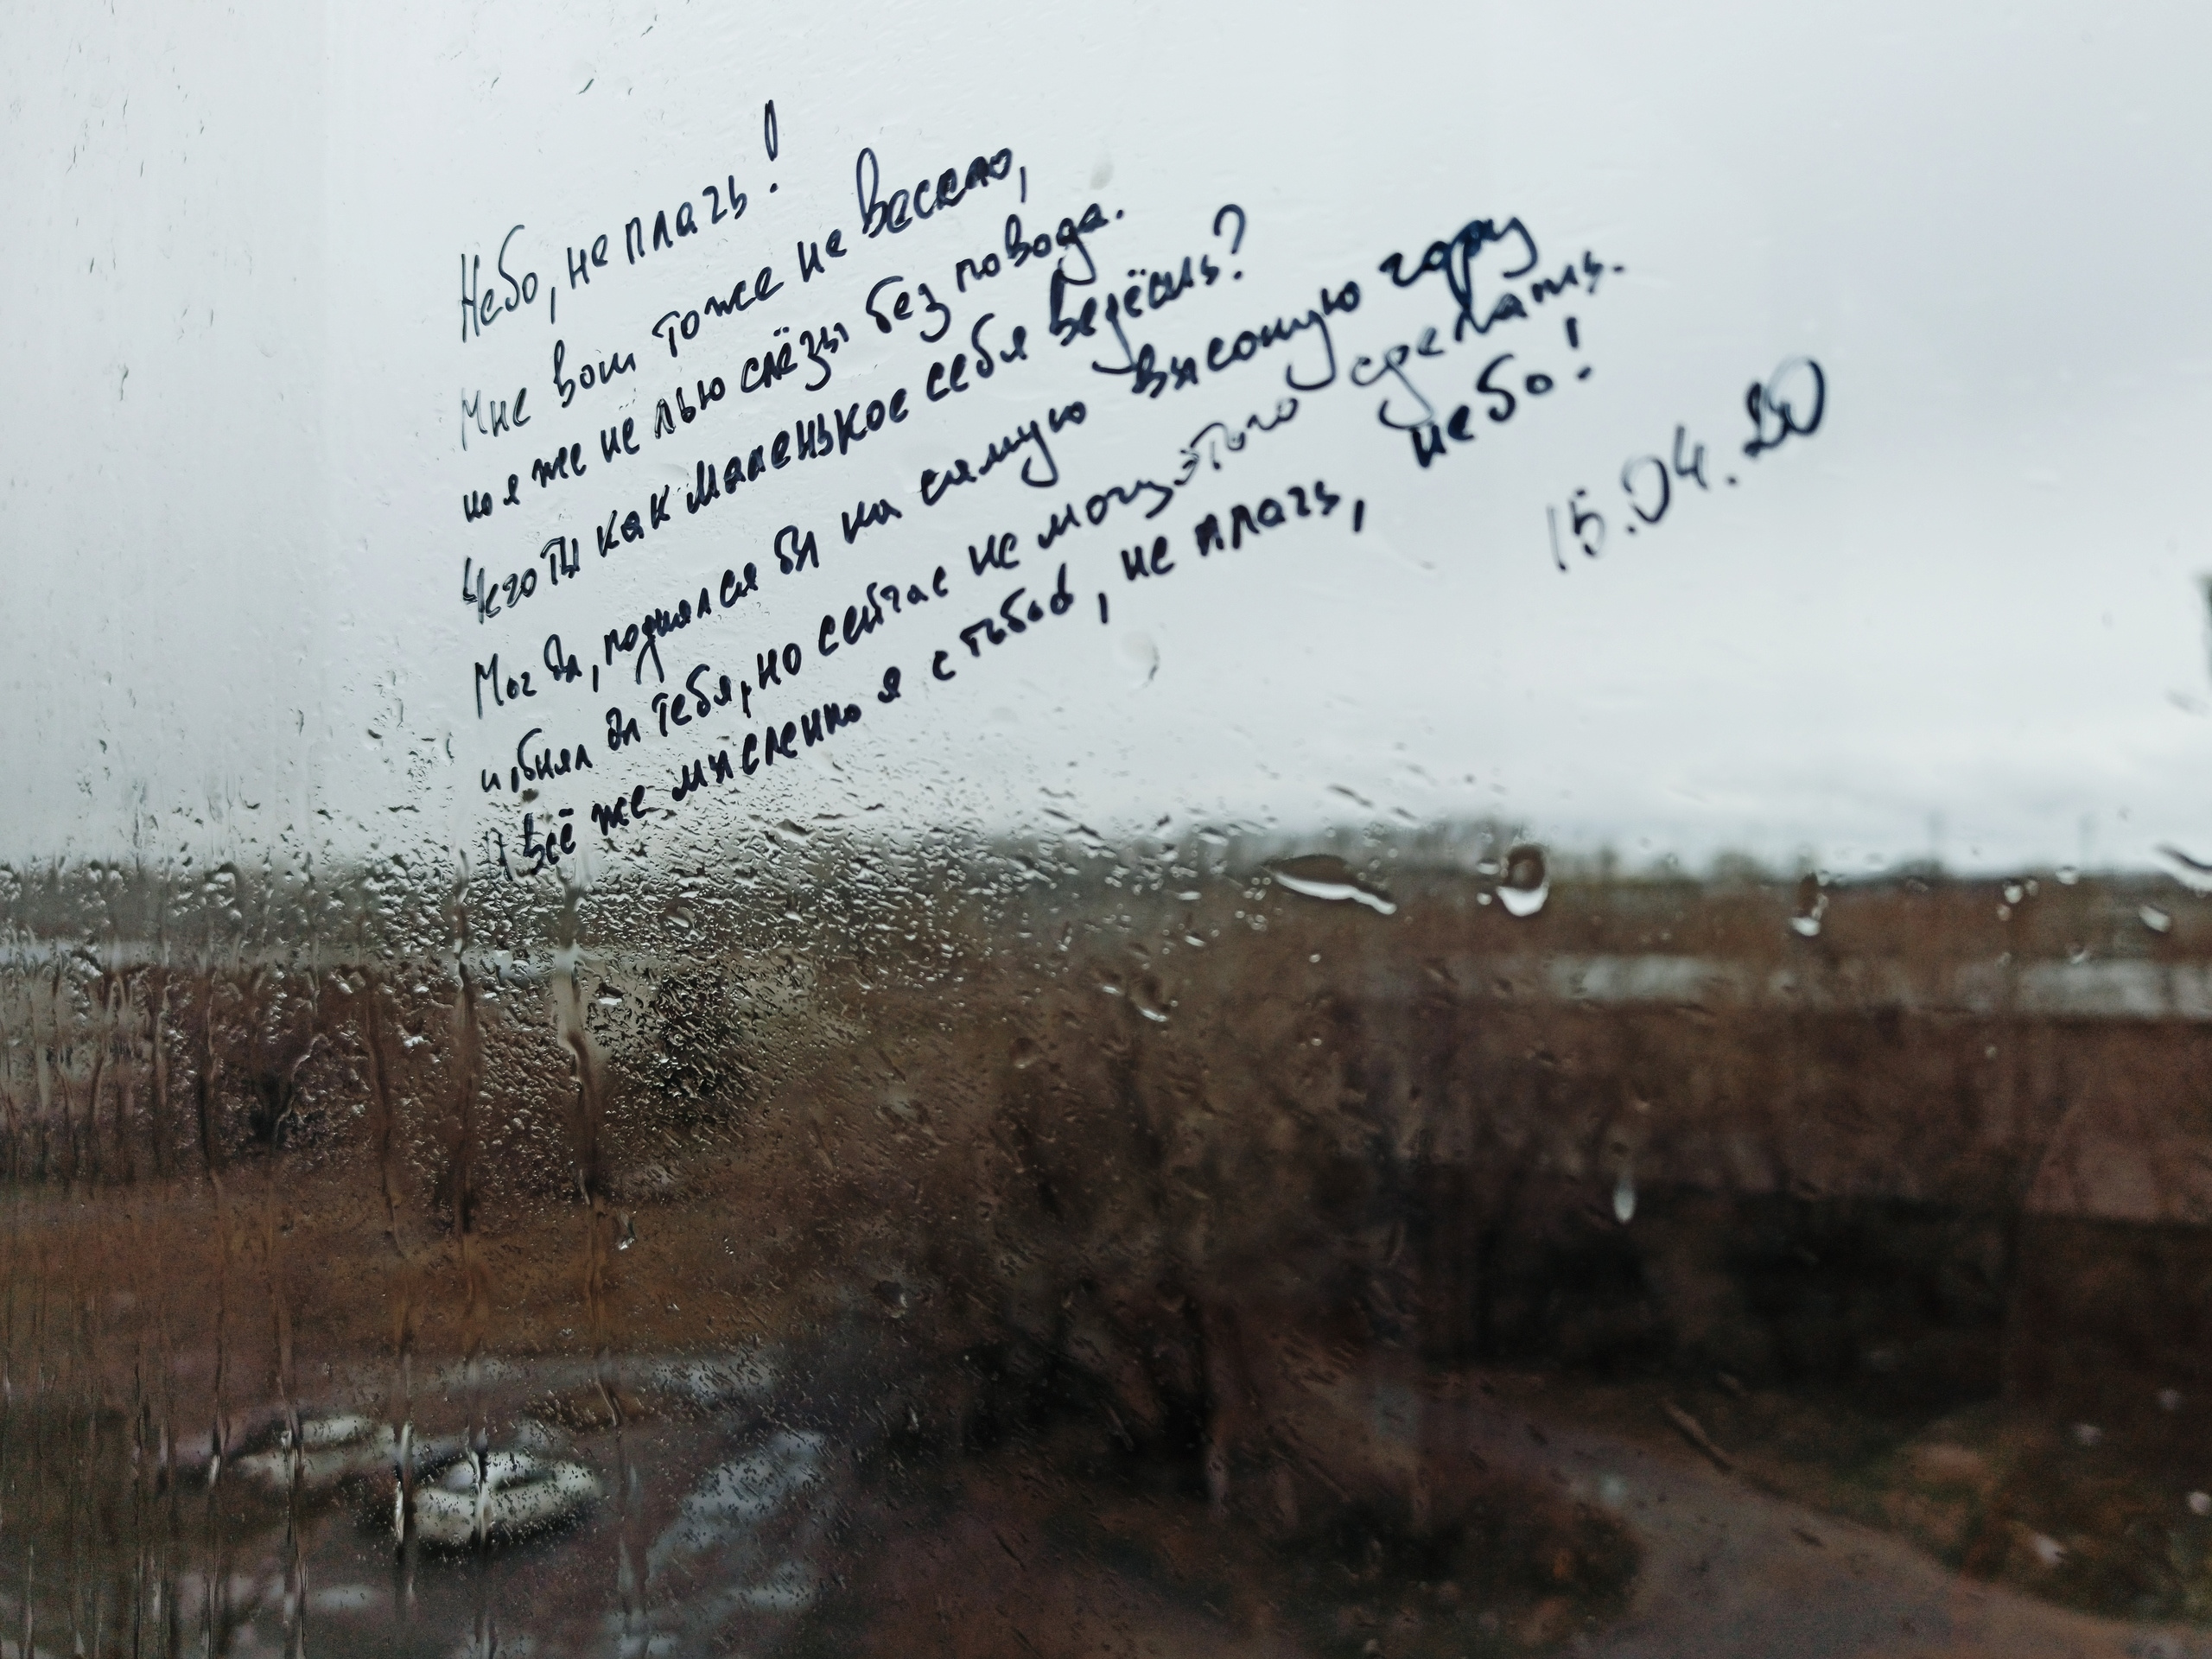 Небо, не плачь!
Мне вот тоже не весело,
но я же не лью слёзы без повода.
Чего ты как маленькое себя ведёшь?
Мог бы, поднялся бы на самую высокую гору
и обнял бы тебя, но сейчас не могу этого сделать.
И всё же мысленно я с тобой, не плачь, небо!
15.04.20